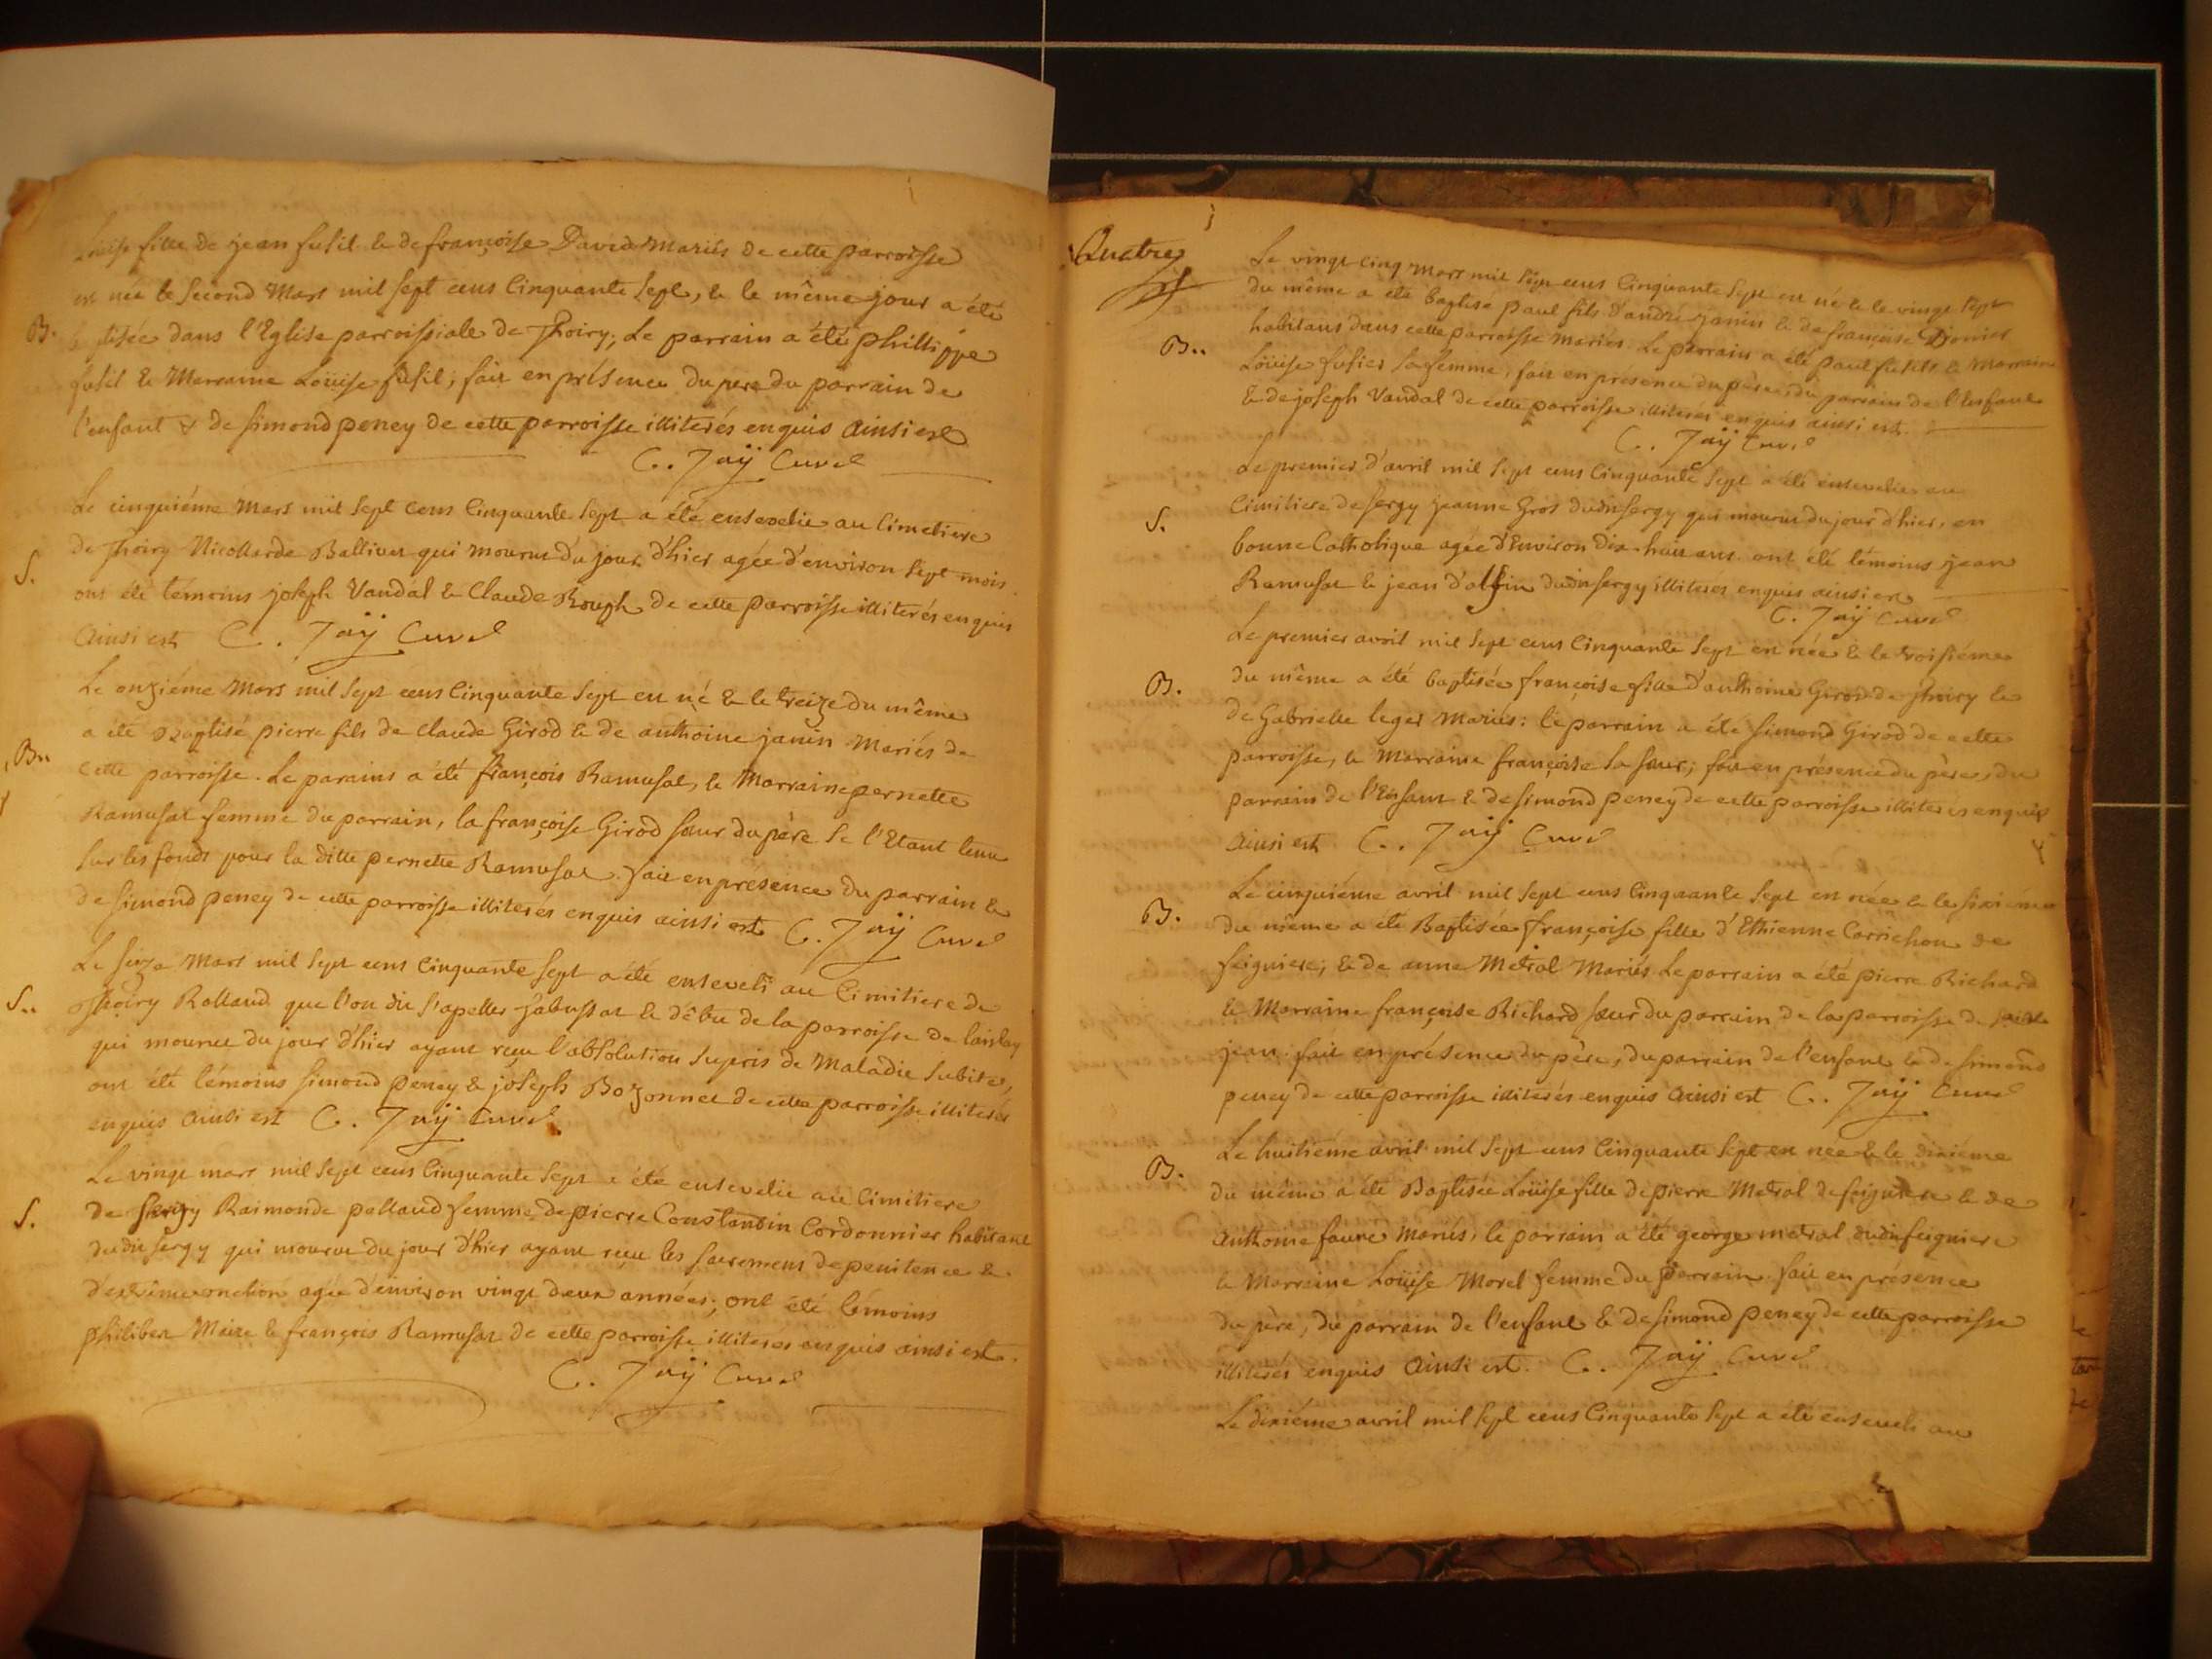 Loüise fille de jean fusil & de françoise David Mariés de cette parroisse
est née le second Mars mil sept cens Cinquante sept, & le même jour a été
B. baptisée dans l'Eglise parroissiale de Thoiry; Le parrain a été phillippe
fusil & Marraine Loüise fusil; fait en présence du pere du parrain de
l'enfant & de simond peney de cette parroisse illiterés enquis ainsi est
C. Jaÿ Curé
Le cinquiéme Mars mil sept cens Cinquante sept a été ensevelie au Cimetiere
de Thoiry Nicollarde Ballivet qui mourut du jour d'hier agée d'environ sept mois
S. ont été témoins joseph Vandal & Claude Rouph de cette parroisse illiterés enquis
ainsi est C. Jaÿ Curé
Le onziéme Mars mil sept cens Cinquante sept est né & le treize du même
a été Baptisé pierre fils de Claude Girod & de anthoine janin Mariés de
B.. cette parroisse. Le parains a été françois Ramusat, & Marraine pernette
Ramusat femme du parrain, la françoise Girod sœur du père se l'Etant tenu
sur les fonds pour la ditte pernette Ramusat. fait en présence du parrain &
de simond peney de cette parroisse illiterés enquis ainsi est C. Jaÿ Curé
Le seize Mars mil sept cens Cinquante sept a été enseveli au Cimitiere de
S.. Thoiry Rolland que l'on dit s'apeller & de la parroisse de
qui mourut du jour d'hier ayant reçu l'absolution supris de Maladie subite,
ont été témoins simond peney & joseph Bozonnet de cette parroisse illiterés
enquis ainsi est C. Jaÿ Curé
Le vingt mars mil sept cens Cinquante sept a été ensevelie au Cimitiere
S. de sergy Raimonde pallaud femme de pierre Constantin Cordonnier habitant
dudit sergy qui mourut du jour d'hier ayant reçu les sacremens de penitence &
d'extrême onction agée d'environ vingt deux années; ont été témoins
philibert Maire & françois Ramusat de cette parroisse illiterés enquis ainsi est.
C. Jaÿ Curé
Quatre
Le vingt cinq Mars mil sept cens Cinquante sept est né & le vingt sept
du même a été baptisé paul fils d'andré janin & de françoise
habitans dans cette parroisse mariés. Le parrain a été paul fusil & Marraine
B.. Loüise fusier sa femme, fait en présence du père, du parrain de l'Enfant
& de joseph Vandal de cette parroisse illiterés enquis ainsi est.
C. Jaÿ Curé
Le premier d'avril mil sept cens Cinquante sept a été ensevelie au
S. Cimitiere de sergy jeanne Gros dudit sergy qui mourut du jour d'hier, en
bonne Catholique agée d'Environ Dix-huit ans. ont été témoins jean
Ramusat & jean dudit sergy illiterés enquis ainsi est
C. Jaÿ Curé
Le premier avril mil sept cens Cinquante sept est née & le troisiéme
B. du même a été baptisée françoise fille d'anthoine Girod de Thoiry &
de Gabrielle leger Mariés: le parrain a été simond Girod de cette
parroisse, & Marraine françoise sa sœur; fait en présence du père, du
parrain de l'Enfant & de simond peney de cette parroisse illiterés enquis
ainsi est C. Jaÿ Curé
Le cinquiéme avril mil sept cens Cinquante sept est née & le sixiéme
B. du même a été Baptisée françoise fille d'Ethienne Corrichon de
feigniere; & de anne Metral Mariés Le parrain a été pierre Richard
& Marraine françoise Richard sœur du parrain de la parroisse de saint
jean. fait en présence du père, du parrain de l'enfant & de simond
peney de cette parroisse illiterés enquis ainsi est C. Jaÿ Curé
Le huitiéme avril mil sept cens Cinquante sept est née & le dixiéme
B. du même a été Baptisée Loüise fille de pierre Metral de feigniere & de
anthoine faure Mariés, le parrain a été george metral dudit feigniere
& Marraine Loüise Morel femme du parrain. fait en présence
du père, du parrain de l'enfant & de simond peney de cette parroisse
illiterés enquis ainsi est. C. Jaÿ Curé
Le dixiéme avril mil sept cens Cinquante sept a été enseveli au